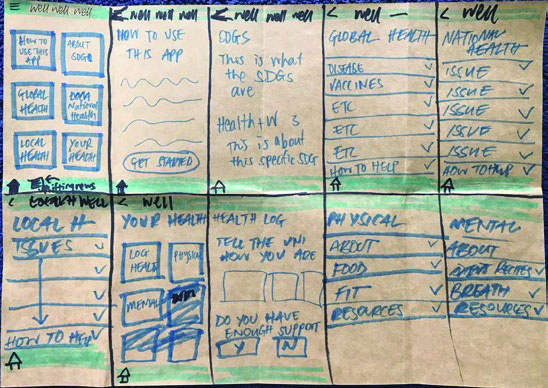 well well well
HOW TO
USE THIS
APP
ABOUT
SDGS
GLOBAL
HEALTH
National
Health
LOCAL
HEALTH
YOUR
HEALTH
well well well
HOW TO USE
THIS APP
GET STARTED
well well well
SDGS
This is what
the SDGs
are
Health+W 3
This is about
this specific SDG
well
GLOBAL HEALTH
DISEASE
VACCINES
ETC
ETC
ETC
HOW TO HELP
well
NATIONAL
HEALTH
ISSUE
ISSUE
ISSUE
ISSUE
ISSUE
HOW TO HELP
WELL
LOCAL H
ISSUES
HOW TO HELP
well
YOUR HEALTH
LOG
HEALTH
PHYSICAL
MENTAL
HEALTH LOG
TELL THE UNI
HOW YOU ARE
DO YOU HAVE
ENOUGH SUPPORT
Y N
PHYSICAL
ABOUT
FOOD
FIT
RESOURCES
MENTAL
ABOUT
BREATH
RESOURCES